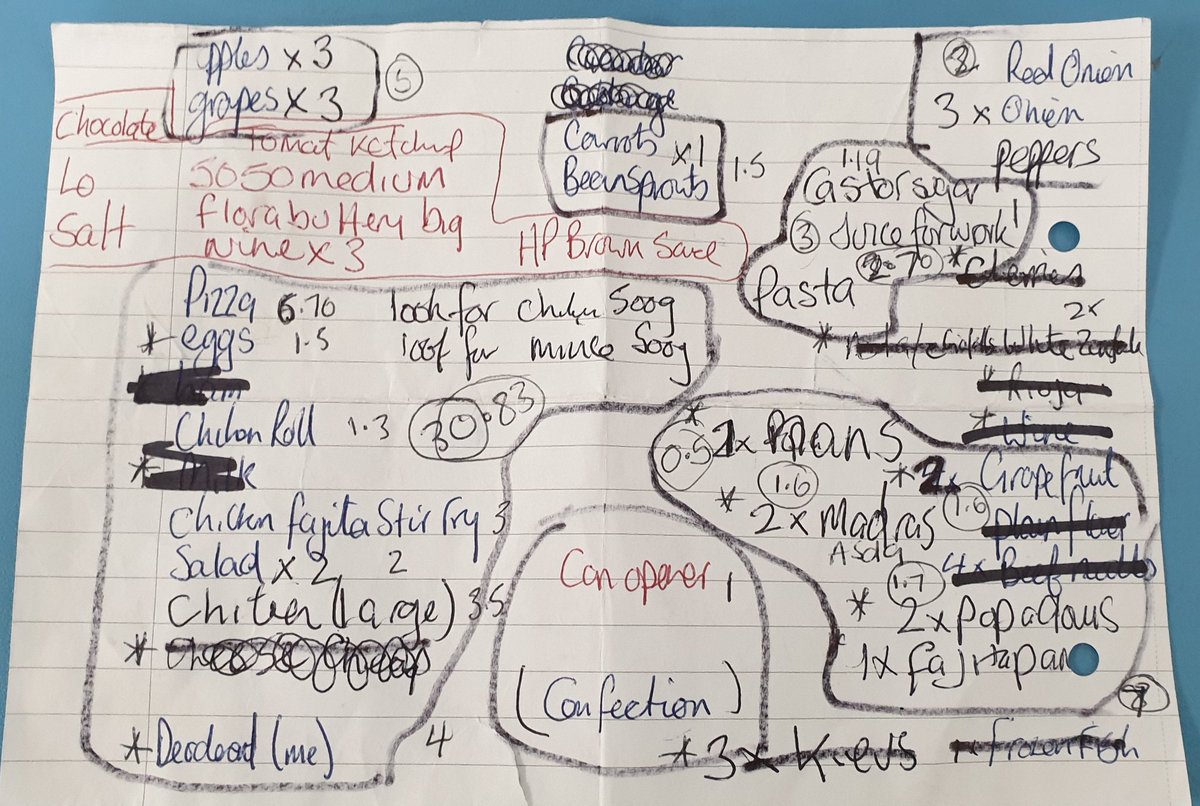 apples x 3
grapes x 3
5
Chocolate
Lo
Salt
Tomat Ketchup
5050 medium
flora buttery big
wine x 3
HP Brown Sauce
Carrots
Beensprouts
x1
1.5
Red Onion
3 x Onion
peppers
1.19
Castor sugar
3 Juice for work 1
Pasta
2.70
* cherries
2x
*
Pizza 6.70
look for chicken 500g
* eggs 1.5
loof for mince 500g
Chicken Roll 1.3
30.83
* Milk
Chicken fajita Stir fry 3
Salad x 2 2
Chicken (large) 3.5
*
* Deodead (me) 4
Can opener 1
(Confection)
*
0.5
Rioja
* Wine
* 2x Grapefruit
1.6
* 2 x Madras
Asda
1.6
plain flour
1.7
4x Beef
* 2 x popadoms
1x fajita pan
7
* 3 x Kievs
frozen fish